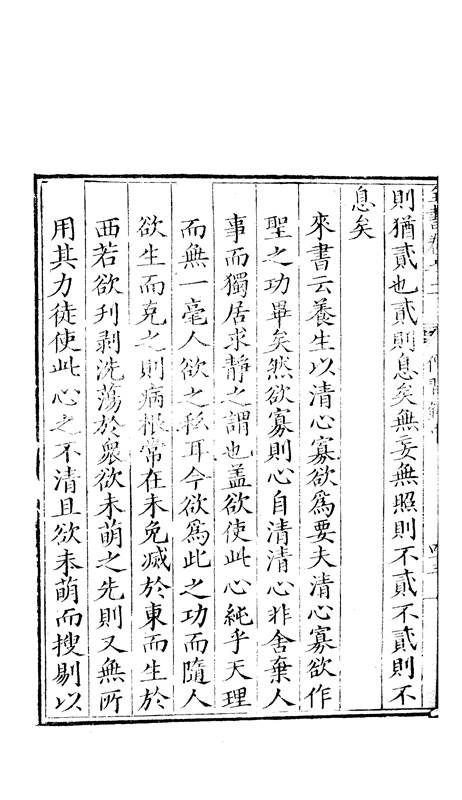 則猶貳也貳則息矣無妄無照則不貳不貳則不
息矣
來書云養生以清心寡欲爲要夫清心寡欲作
聖之功畢矣然欲寡則心自清清心非舍棄人
事而獨居求靜之謂也盖欲使此心純乎天理
而無一毫人欲之私耳今欲爲此之功而隨人
欲生而克之則病根常在未免滅於東而生於
西若欲刋剥洗蕩於衆欲未萌之先則又無所
用其力徒使此心之不清且欲未萌而搜剔以